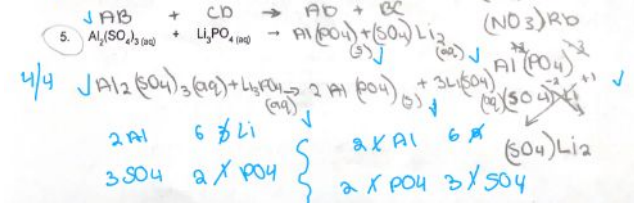 √ AB + CD → AD + BC
(NO3)Rb
5. Al₂(SO₄)₃ (aq) + Li₃PO₄ (aq) → Al(PO4) (s) + (SO4)Li2 (aq) √
Al+3(PO4)-3
4/4 √ Al2(SO4)3(aq) + Li3PO4 (aq) → 2 Al(PO4)(s) + 3Li(SO4) (aq)
(SO4)-2 Li+1 √
2 Al 6 3 Li 2 X Al 6
(SO4)Li2
3 SO4 2 X PO4 2 X PO4 3 X SO4